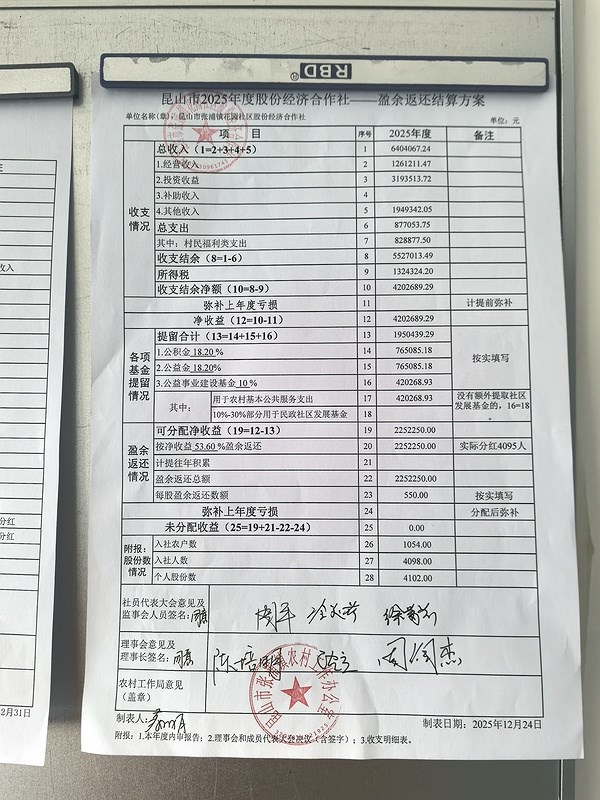 RBD®
昆山市2025年度股份经济合作社——盈余返还结算方案
单位名称(章):昆山市张浦镇花园社区股份经济合作社 单位:元
项 目 序号 2025年度 备注
收支情况
总收入(1=2+3+4+5) 1 6404067.24
1.经营收入 2 1261211.47
2.投资收益 3 3193513.72
3.补助收入 4
4.其他收入 5 1949342.05
总支出 6 877053.75
其中:村民福利类支出 7 828877.50
收支结余(8=1-6) 8 5527013.49
所得税 9 1324324.20
收支结余净额(10=8-9) 10 4202689.29
弥补上年度亏损 11 计提前弥补
净收益(12=10-11) 12 4202689.29
各项基金提留情况
提留合计(13=14+15+16) 13 1950439.29 按实填写
1.公积金 18.20 % 14 765085.18
2.公益金 18.20% 15 765085.18
3.公益事业建设基金 10 % 16 420268.93
其中: 用于农村基本公共服务支出 17 420268.93 没有额外提取社区发展基金的,16=18。
10%-30%部分用于民政社区发展基金 18
盈余返还情况
可分配净收益(19=12-13) 19 2252250.00
按净收益 53.60 %盈余返还 20 2252250.00 实际分红4095人
计提往年积累 21
盈余返还总额 22 2252250.00
每股盈余返还数额 23 550.00 按实填写
弥补上年度亏损 24 分配后弥补
未分配收益(25=19+21-22-24) 25 0.00
附报:股份数情况
入社农户数 26 1054.00
入社人数 27 4098.00
个人股份数 28 4102.00
社员代表大会意见及
监事会人员签名: 同意
理事会意见及
理事长签名: 同意
农村工作局意见
(盖章)
制表人: 制表日期:2025年12月24日
附报:1.本年度内审报告;2.理事会和成员代表大会决议(含签字);3.收支明细表。
收入
分红
分红
2月31日